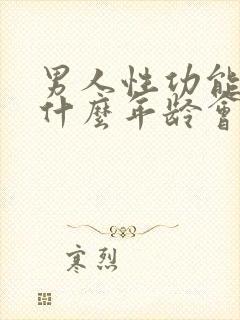 男人性功能
什麼年龄會
寒烈